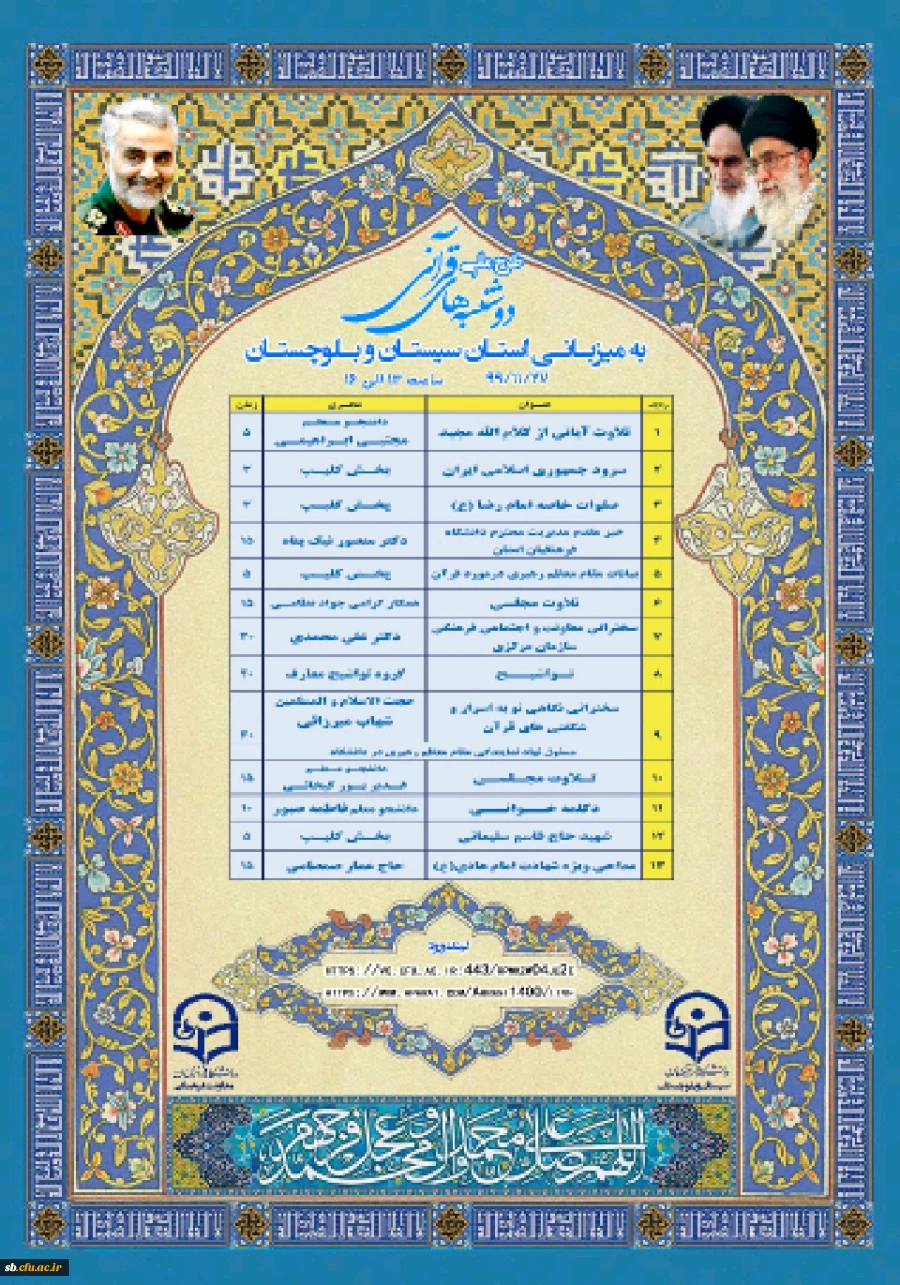 طرح ملی
دوشنبه‌های قرآنی
به میزبانی استان سیستان و بلوچستان
۹۹/۱۱/۲۷ ساعت ۱۳ الی ۱۶
ردیف عنوان مجری زمان
۱ تلاوت آیاتی از کلام الله مجید دانشجو معلم مجتبی ابراهیمی ۵
۲ سرود جمهوری اسلامی ایران پخش کلیپ ۳
۳ صلوات خاصه امام رضا (ع) پخش کلیپ ۳
۴ خیر مقدم مدیریت محترم دانشگاه فرهنگیان استان دکتر منصور نیک پناه ۱۵
۵ بیانات مقام معظم رهبری درمورد قرآن پخش کلیپ ۵
۶ تلاوت مجلسی همکار گرامی جواد ۱۵
۷ سخنرانی معاونت و اجتماعی فرهنگی سازمان مرکزی دکتر محمدی ۳۰
۸ تواشیح گروه تواشیح معارف ۲۰
۹ سخنرانی نگاهی نو به اسرار و شگفتی های قرآن حجت الاسلام و المسلمین شهاب میرزائی ۳۰
مسئول نهاد نمایندگی مقام معظم رهبری در دانشگاه
۱۰ تلاوت مجلسی دانشجو معلم پور ۱۵
۱۱ دکلمه خوانی دانشجو معلم فاطمه صبور ۱۰
۱۲ شهید حاج قاسم سلیمانی پخش کلیپ ۵
۱۳ مداحی ویژه شهادت امام هادی(ع) حاج عمار صمصامی ۱۵
لینک ورود
دانشگاه فرهنگیان
سیستان و بلوچستان
دانشگاه فرهنگیان
معاونت فرهنگی
اللهم صل علی محمد و آل محمد و عجل فرجهم
sb.cfu.ac.ir